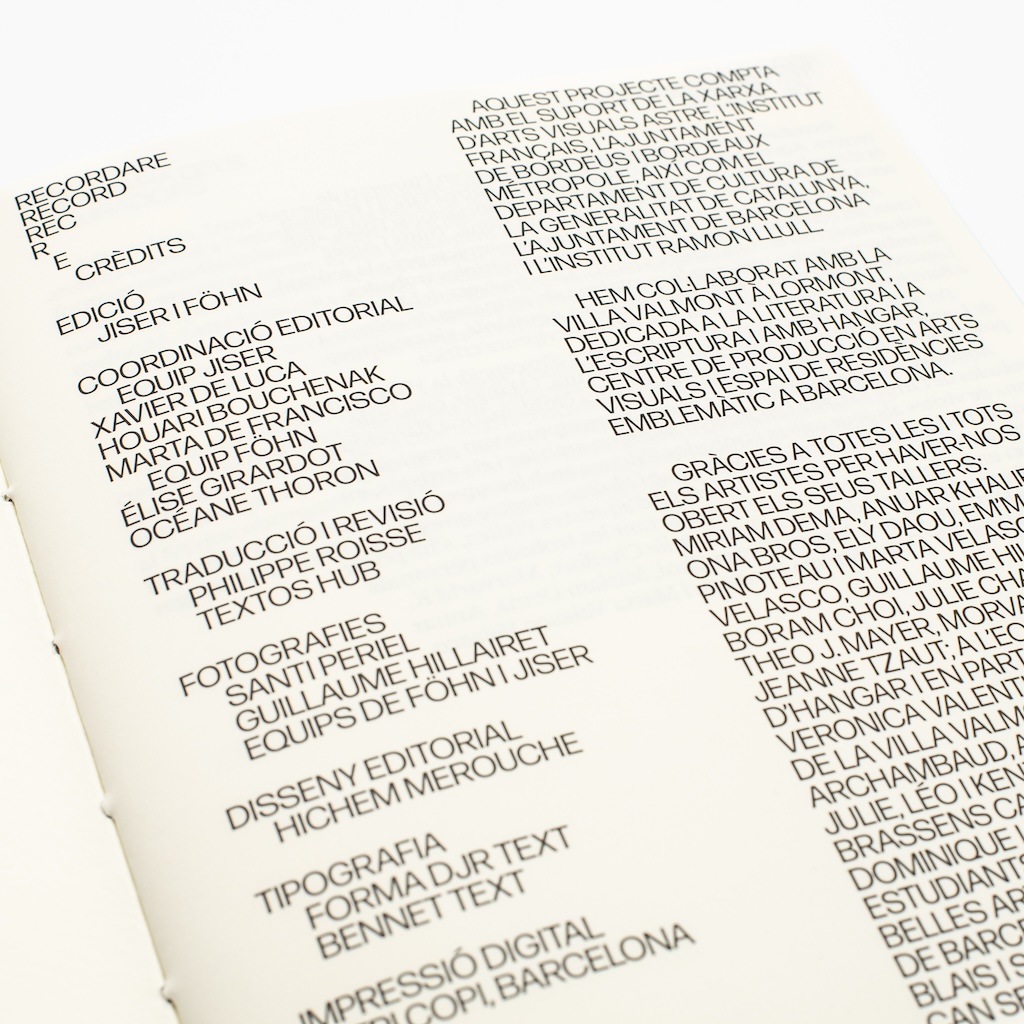 RECORDARE
RECORD
REC
R
E
CRÈDITS
EDICIÓ
JISER I FÖHN
COORDINACIÓ EDITORIAL
EQUIP JISER
XAVIER DE LUCA
HOUARI BOUCHENAK
MARTA DE FRANCISCO
EQUIP FÖHN
ÉLISE GIRARDOT
OCÉANE THORON
TRADUCCIÓ I REVISIÓ
PHILIPPE ROISSE
TEXTOS HUB
FOTOGRAFIES
SANTI PERIEL
GUILLAUME HILLAIRET
EQUIPS DE FÖHN I JISER
DISSENY EDITORIAL
HICHEM MEROUCHE
TIPOGRAFIA
FORMA DJR TEXT
BENNET TEXT
IMPRESSIÓ DIGITAL
COPI, BARCELONA
AQUEST PROJECTE COMPTA
AMB EL SUPORT DE LA XARXA
D'ARTS VISUALS ASTRE, L'INSTITUT
FRANÇAIS, L'AJUNTAMENT
DE BORDEUS I BORDEAUX
MÉTROPOLE, AIXÍ COM EL
DEPARTAMENT DE CULTURA DE
LA GENERALITAT DE CATALUNYA,
L'AJUNTAMENT DE BARCELONA
I L'INSTITUT RAMON LLULL.
HEM COL·LABORAT AMB LA
VILLA VALMONT À LORMONT,
DEDICADA A LA LITERATURA I A
L'ESCRIPTURA I AMB HANGAR,
CENTRE DE PRODUCCIÓ EN ARTS
VISUALS I ESPAI DE RESIDÈNCIES
EMBLEMÀTIC A BARCELONA.
GRÀCIES A TOTES LES I TOTS
ELS ARTISTES PER HAVER-NOS
OBERT ELS SEUS TALLERS:
MIRIAM DEMA, ANUAR KHALIF
ONA BROS, ELY DAOU, EMM
PINOTEAU I MARTA VELASC
VELASCO, GUILLAUME HIL
BORAM CHOI, JULIE CHA
THEO J. MAYER, MORVA
JEANNE TZAUT; A L'EQ
D'HANGAR I EN PART
VERONICA VALENTI
DE LA VILLA VALMO
ARCHAMBAUD, A
JULIE, LÉO I KEN
BRASSENS CA
DOMINIQUE
ESTUDIANTS
BELLES AR
DE BARCE
BLAIS I S
CAN SE